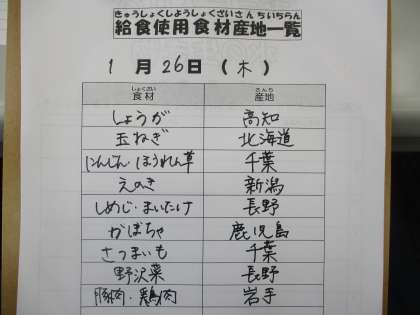 きゅうしょくしようしょくざいさんちいちらん
給食使用食材産地一覧
1月26日(木)
しょくざい さんち
食材 産地
しょうが 高知
玉ねぎ 北海道
にんじん・ほうれん草 千葉
えのき 新潟
しめじ・まいたけ 長野
かぼちゃ 鹿児島
さつまいも 千葉
野沢菜 長野
豚肉・鶏肉 岩手